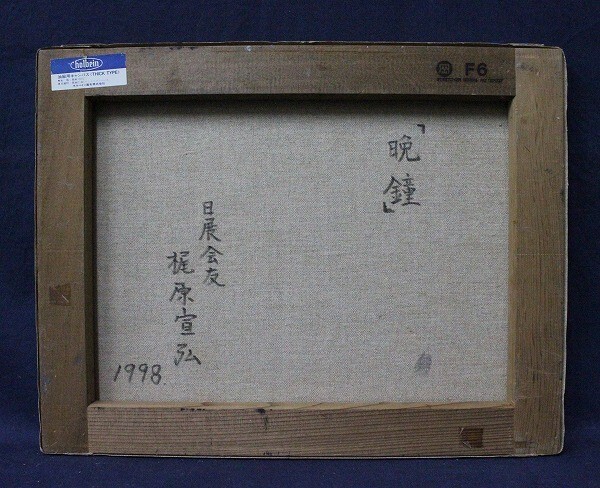 holbein
油絵用キャンバス〈THICK TYPE〉
F6
「晩鐘」
日展会友
梶原宣弘
1998.